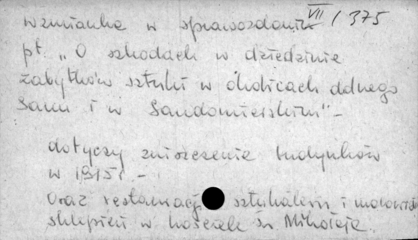 wzmianka w sprawozdaniu VII / 375
pt. „O szkodach w dziedzinie
zabytków sztuki w okolicach dolnego
Sanu i w Sandomierskim" –
dotyczy zniszczenia budynków
w 1915 r. –
Oraz restauracji sztukaterii i malowideł
sklepień w kościele św. Mikołaja.